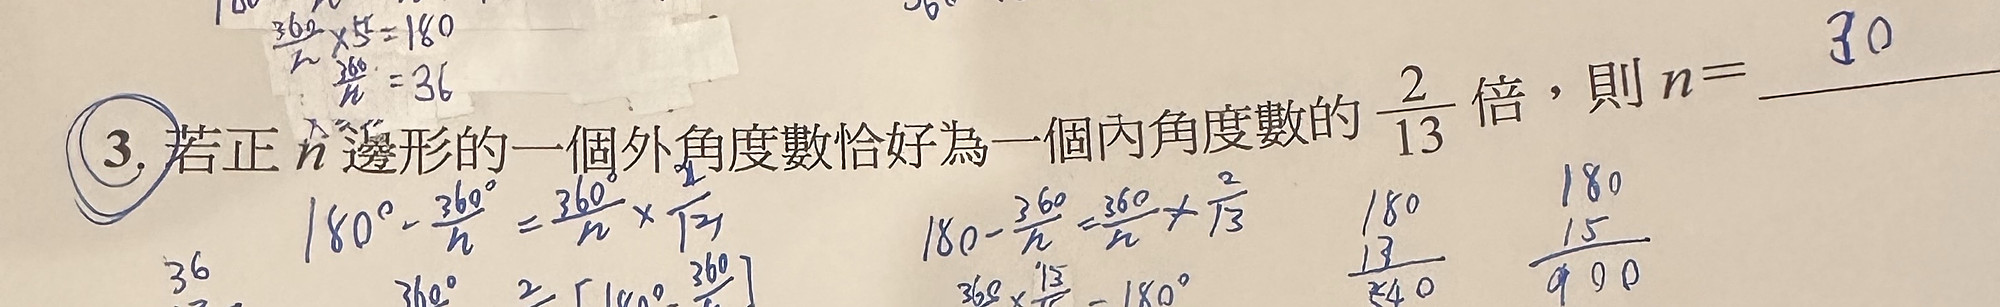 360/n ×5=180
360/n =36
3. 若正 n 邊形的一個外角度數恰好為一個內角度數的 2/13 倍，則 n= 30
180° - 360°/n = 360°/n ×
180 - 360/n = 360/n × 2/13
180
13
540
180
15
900
36
360°
2
[180° - 360
360 × 15
= 180°